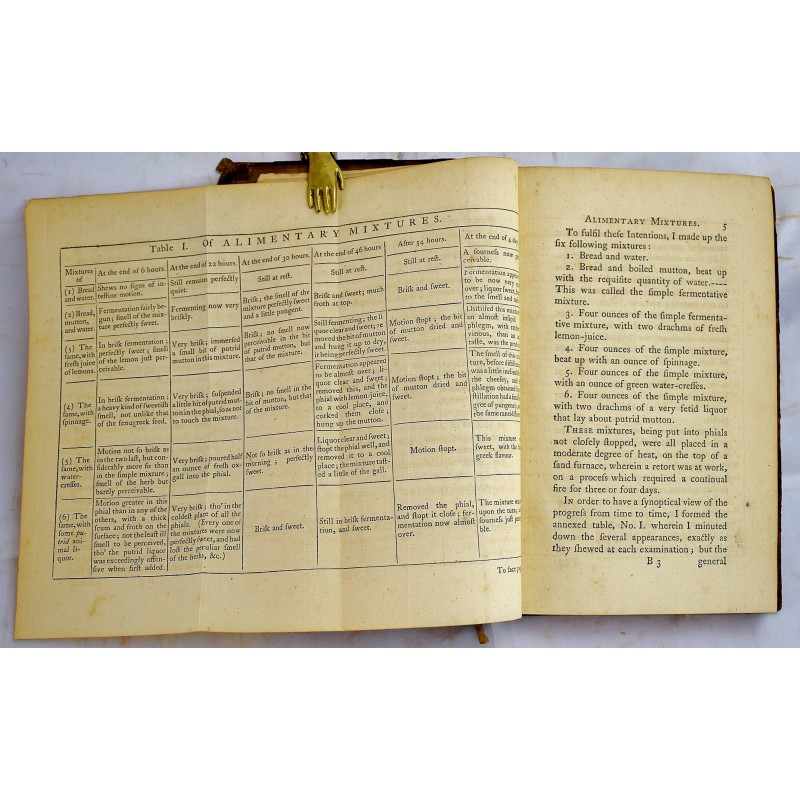 Table I. Of ALIMENTARY MIXTURES.
Mixtures
of
At the end of 6 hours.
At the end of 22 hours.
At the end of 30 hours.
At the end of 46 hours
After 54 hours.
At the end of 4 d
(1) Bread
and water.
Shews no signs of in-
teſtine motion.
Still remain perfectly
quiet.
Still at reſt.
Still at reſt.
Still at reſt.
A ſourneſs now pe
ceivable.
(2) Bread,
mutton,
and water.
Fermentation fairly be-
gun; ſmell of the mix-
ture perfectly ſweet.
Fermenting now very
briſkly.
Briſk; the ſmell of the
mixture perfectly ſweet
and a little pungent.
Briſk and ſweet; much
froth at top.
Briſk and ſweet.
Fermentation appea
to be now very
over; liquor ſweet,
to the ſmell and ta
(3) The
ſame, with
freſh juice
of lemons.
In briſk fermentation;
perfectly ſweet; ſmell
of the lemon juſt per-
ceivable.
Very briſk; immerſed
a ſmall bit of putrid
mutton in this mixture.
Briſk; no ſmell now
perceivable in the bit
of putrid mutton, but
that of the mixture.
Still fermenting; the li
quor clear and ſweet; re
moved the bit of mutton
and hung it up to dry,
it being perfectly ſweet.
Motion ſtopt; the bit
of mutton dried and
ſweet.
Diſtilled this mixtu
an almoſt inſipid
phlegm, with more
vinous, than a
taſte, was the produ
(4) The
ſame, with
ſpinnage.
In briſk fermentation;
a heavy kind of ſweetiſh
ſmell, not unlike that
of the fenugreek ſeed.
Very briſk; ſuſpended
a little bit of putrid mut-
ton in the phial, ſo as not
to touch the mixture.
Briſk; no ſmell in the
bit of mutton, but that
of the mixture.
Fermentation appeared
to be almoſt over; li-
quor clear and ſweet;
removed this, and the
phial with lemon-juice,
to a cool place, and
corked them cloſe;
hung up the mutton.
Motion ſtopt; the bit
of mutton dried and
ſweet.
The ſmell of this
ture, before diſtillatio
was a little inclinin
the cheeſey, and
phlegm obtained
ſtillation had a ſmall
gree of pungency,
the ſame raniciδ
(5) The
ſame, with
water-
creſſes.
Motion not ſo briſk as
in the two laſt, but con-
ſiderably more ſo than
in the ſimple mixture;
ſmell of the herb but
barely perceivable.
Very briſk; poured half
an ounce of freſh ox-
gall into the phial.
Not ſo briſk as in the
morning; perfectly
ſweet.
Liquor clear and ſweet;
ſtopt the phial well, and
removed it to a cool
place; the mixture taſt-
ed a little of the gall.
Motion ſtopt.
This mixture
ſweet, with the
greek flavour.
(6) The
ſame, with
ſome pu-
trid ani-
mal li-
quor.
Motion greater in this
phial than in any of the
others, with a thick
ſcum and froth on the
ſurface; not the leaſt ill
ſmell to be perceived,
tho' the putrid liquor
was exceedingly offen-
ſive when firſt added.
Very briſk, tho' in the
coldeſt place of all the
phials. (Every one of
the mixtures were now
perfectly ſweet, and had
loſt the peculiar ſmell
of the herbs, &c.)
Briſk and ſweet.
Still in briſk fermenta-
tion, and ſweet.
Removed the phial,
and ſtopt it cloſe; fer-
mentation now almoſt
over.
The mixture
upon the turn;
ſourneſs juſt per
ble.
To face p
ALIMENTARY MIXTURES. 5
To fulfil theſe Intentions, I made up the
ſix following mixtures:
1. Bread and water.
2. Bread and boiled mutton, beat up
with the requiſite quantity of water.----
This was called the ſimple fermentative
mixture.
3. Four ounces of the ſimple fermenta-
tive mixture, with two drachms of freſh
lemon-juice.
4. Four ounces of the ſimple mixture,
beat up with an ounce of ſpinnage.
5. Four ounces of the ſimple mixture,
with an ounce of green water-creſſes.
6. Four ounces of the ſimple mixture,
with two drachms of a very fetid liquor
that lay about putrid mutton.
THESE mixtures, being put into phials
not cloſely ſtopped, were all placed in a
moderate degree of heat, on the top of a
ſand furnace, wherein a retort was at work,
on a proceſs which required a continual
fire for three or four days.
IN order to have a ſynoptical view of the
progreſs from time to time, I formed the
annexed table, No. I. wherein I minuted
down the ſeveral appearances, exactly as
they ſhewed at each examination; but the
B 3 general